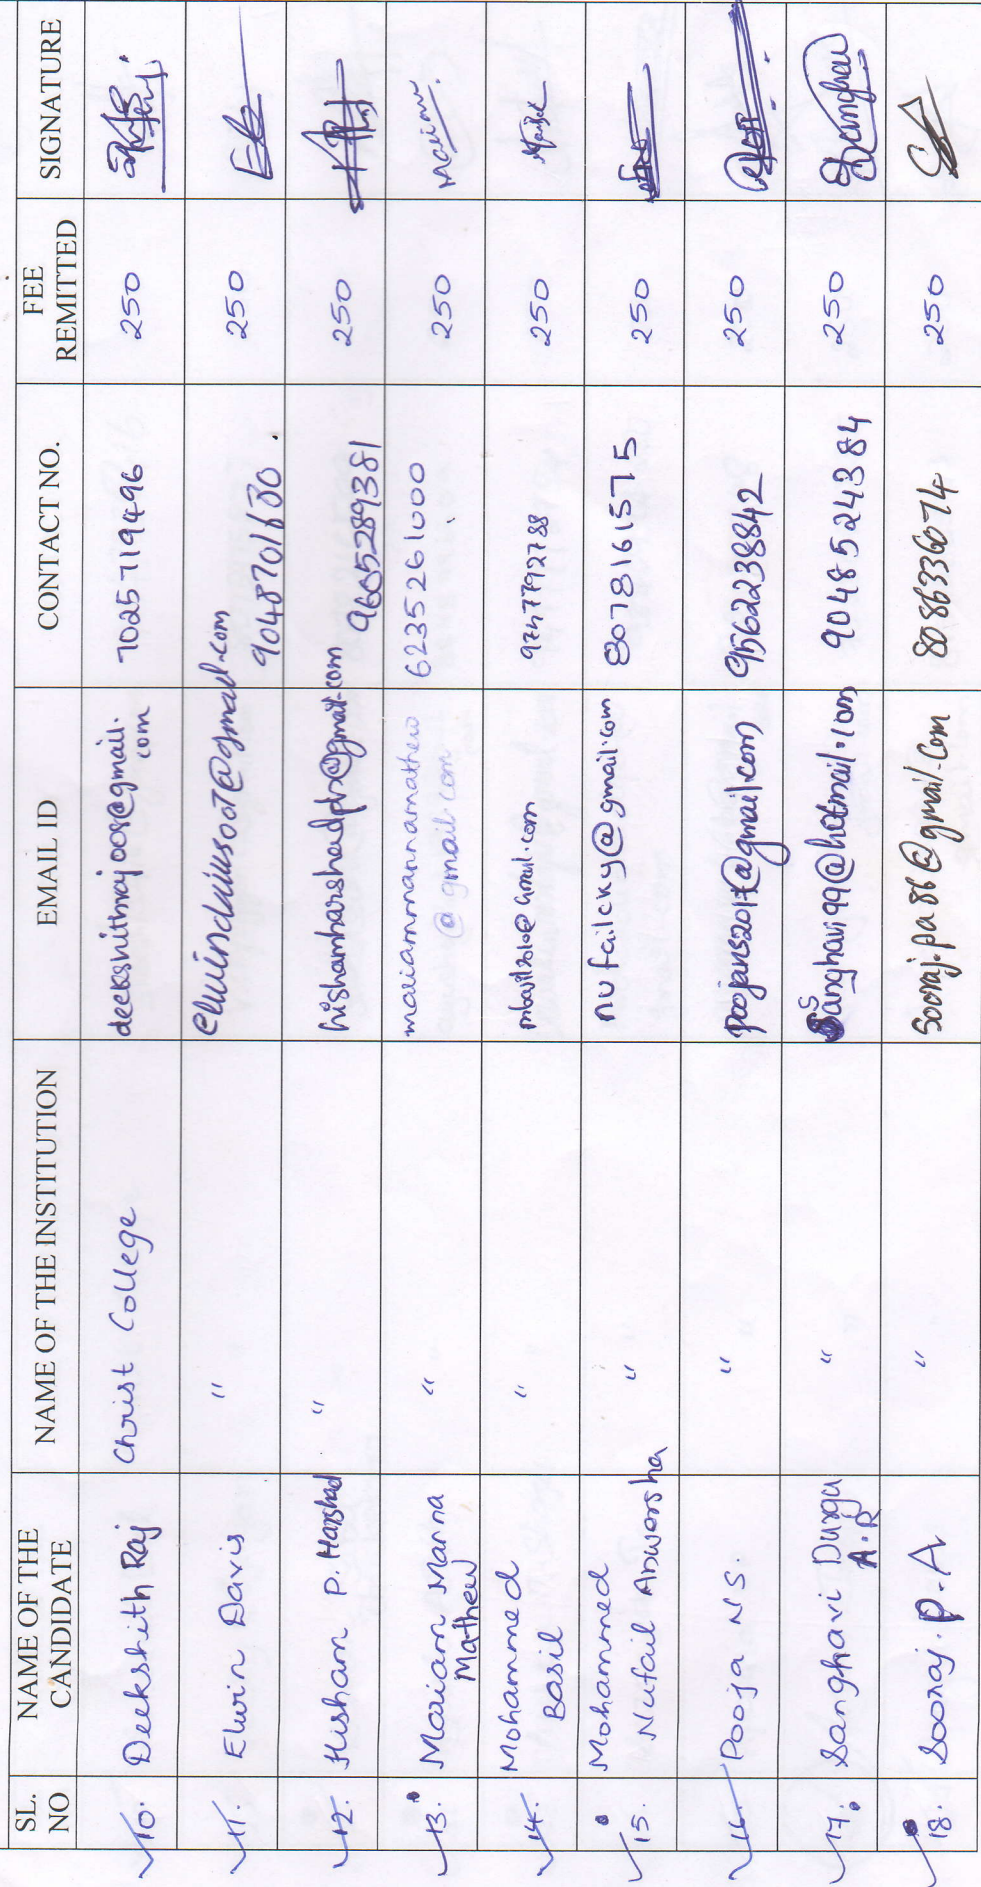 SL. NO NAME OF THE CANDIDATE NAME OF THE INSTITUTION EMAIL ID CONTACT NO. FEE REMITTED SIGNATURE
10. Deekshith Raj Christ College deekshithraj008@gmail.com 7025719496 250
11. Elwin Davis " 9048701630 250
12. Hisham P. Harshad " hishamharshadpvs@gmail.com 9605289381 250
13. Mariam Manna Mathew " mariammannamathew@gmail.com 6235261000 250 Mariam
14. Mohammed Basil " 9747792788 250
15. Mohammed Nufail Anwersha " nufailcky@gmail.com 8078161575 250
16. Pooja N S. " poojans2017@gmail.com 9562238842 250
17. Sanghavi Durga A.R " sanghavi99@hotmail.com 9048524384 250 Sanghavi
18. Sooraj. P.A " Sooraj.pa86@gmail.com 8086336074 250